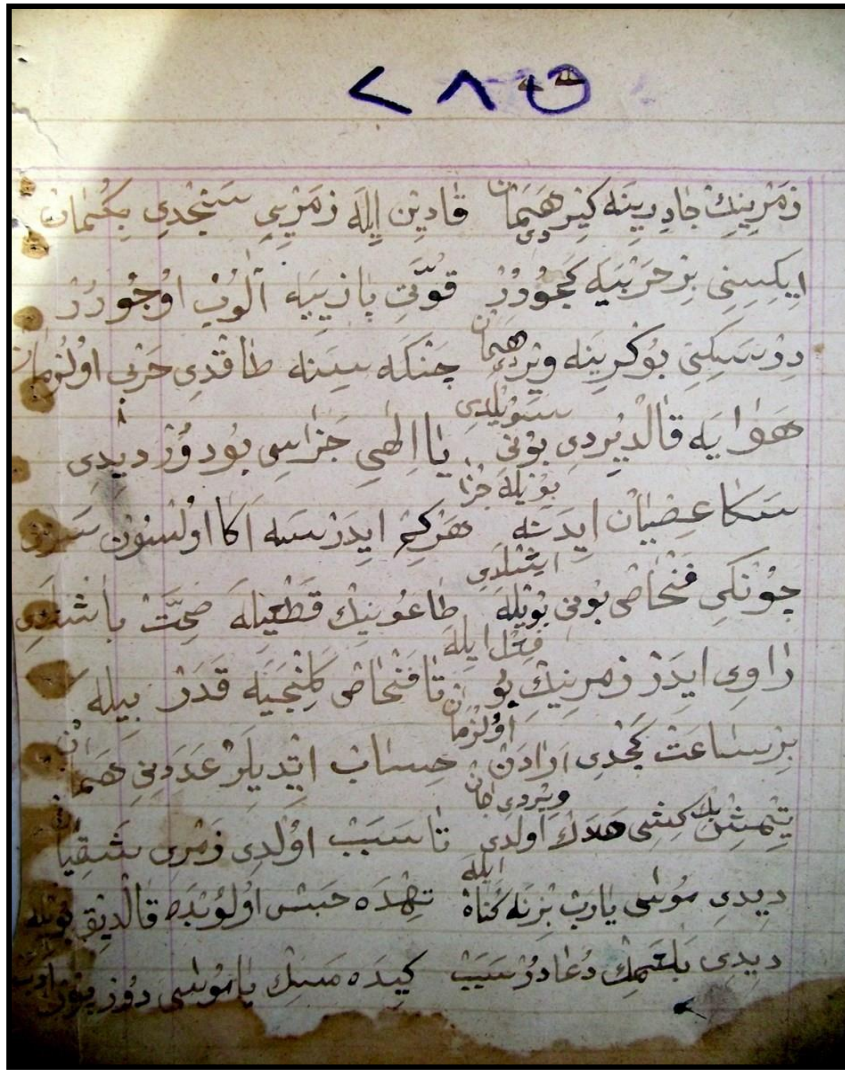 ٢٨٥
زمرينك جادرينه كير همان دى قادين ايله زمريي سنجدى بكمان
ايكيسنى بر حربيه كجوردر قوتى بازييه آلوب اوجوردر
درسكنى بوكرينه ويردى همان جنكه سينه طاقدى حربى اولزمان
هوايه قالديردى بونى سويلدى يا الهي جزاسى بودوز ديدى
سكا عضيان ايدنه بويله جزا هركم ايدرسه اكا اولسون
چونكى فنحاص بونى بويله ايشلدى طاعونيك قطعيله صحت باشلدى
راوى ايدر زمرينك بو فعل ايله تا فنحاص كلنجيه قدر بيله
بر ساعت كجدى ارادن اولزمان حساب ايتديلر عددنى همان
يتمش بيك كشى هلاك اولدى ويردى جان تا سبب اولدى زمرى شقيان
ديدى موسى يارب بز نه كناه ايله تهده حبس اولونده قالديق بويله
ديدى بلعمك دعادر سبب كيده مسك يا موسى دوز يونى